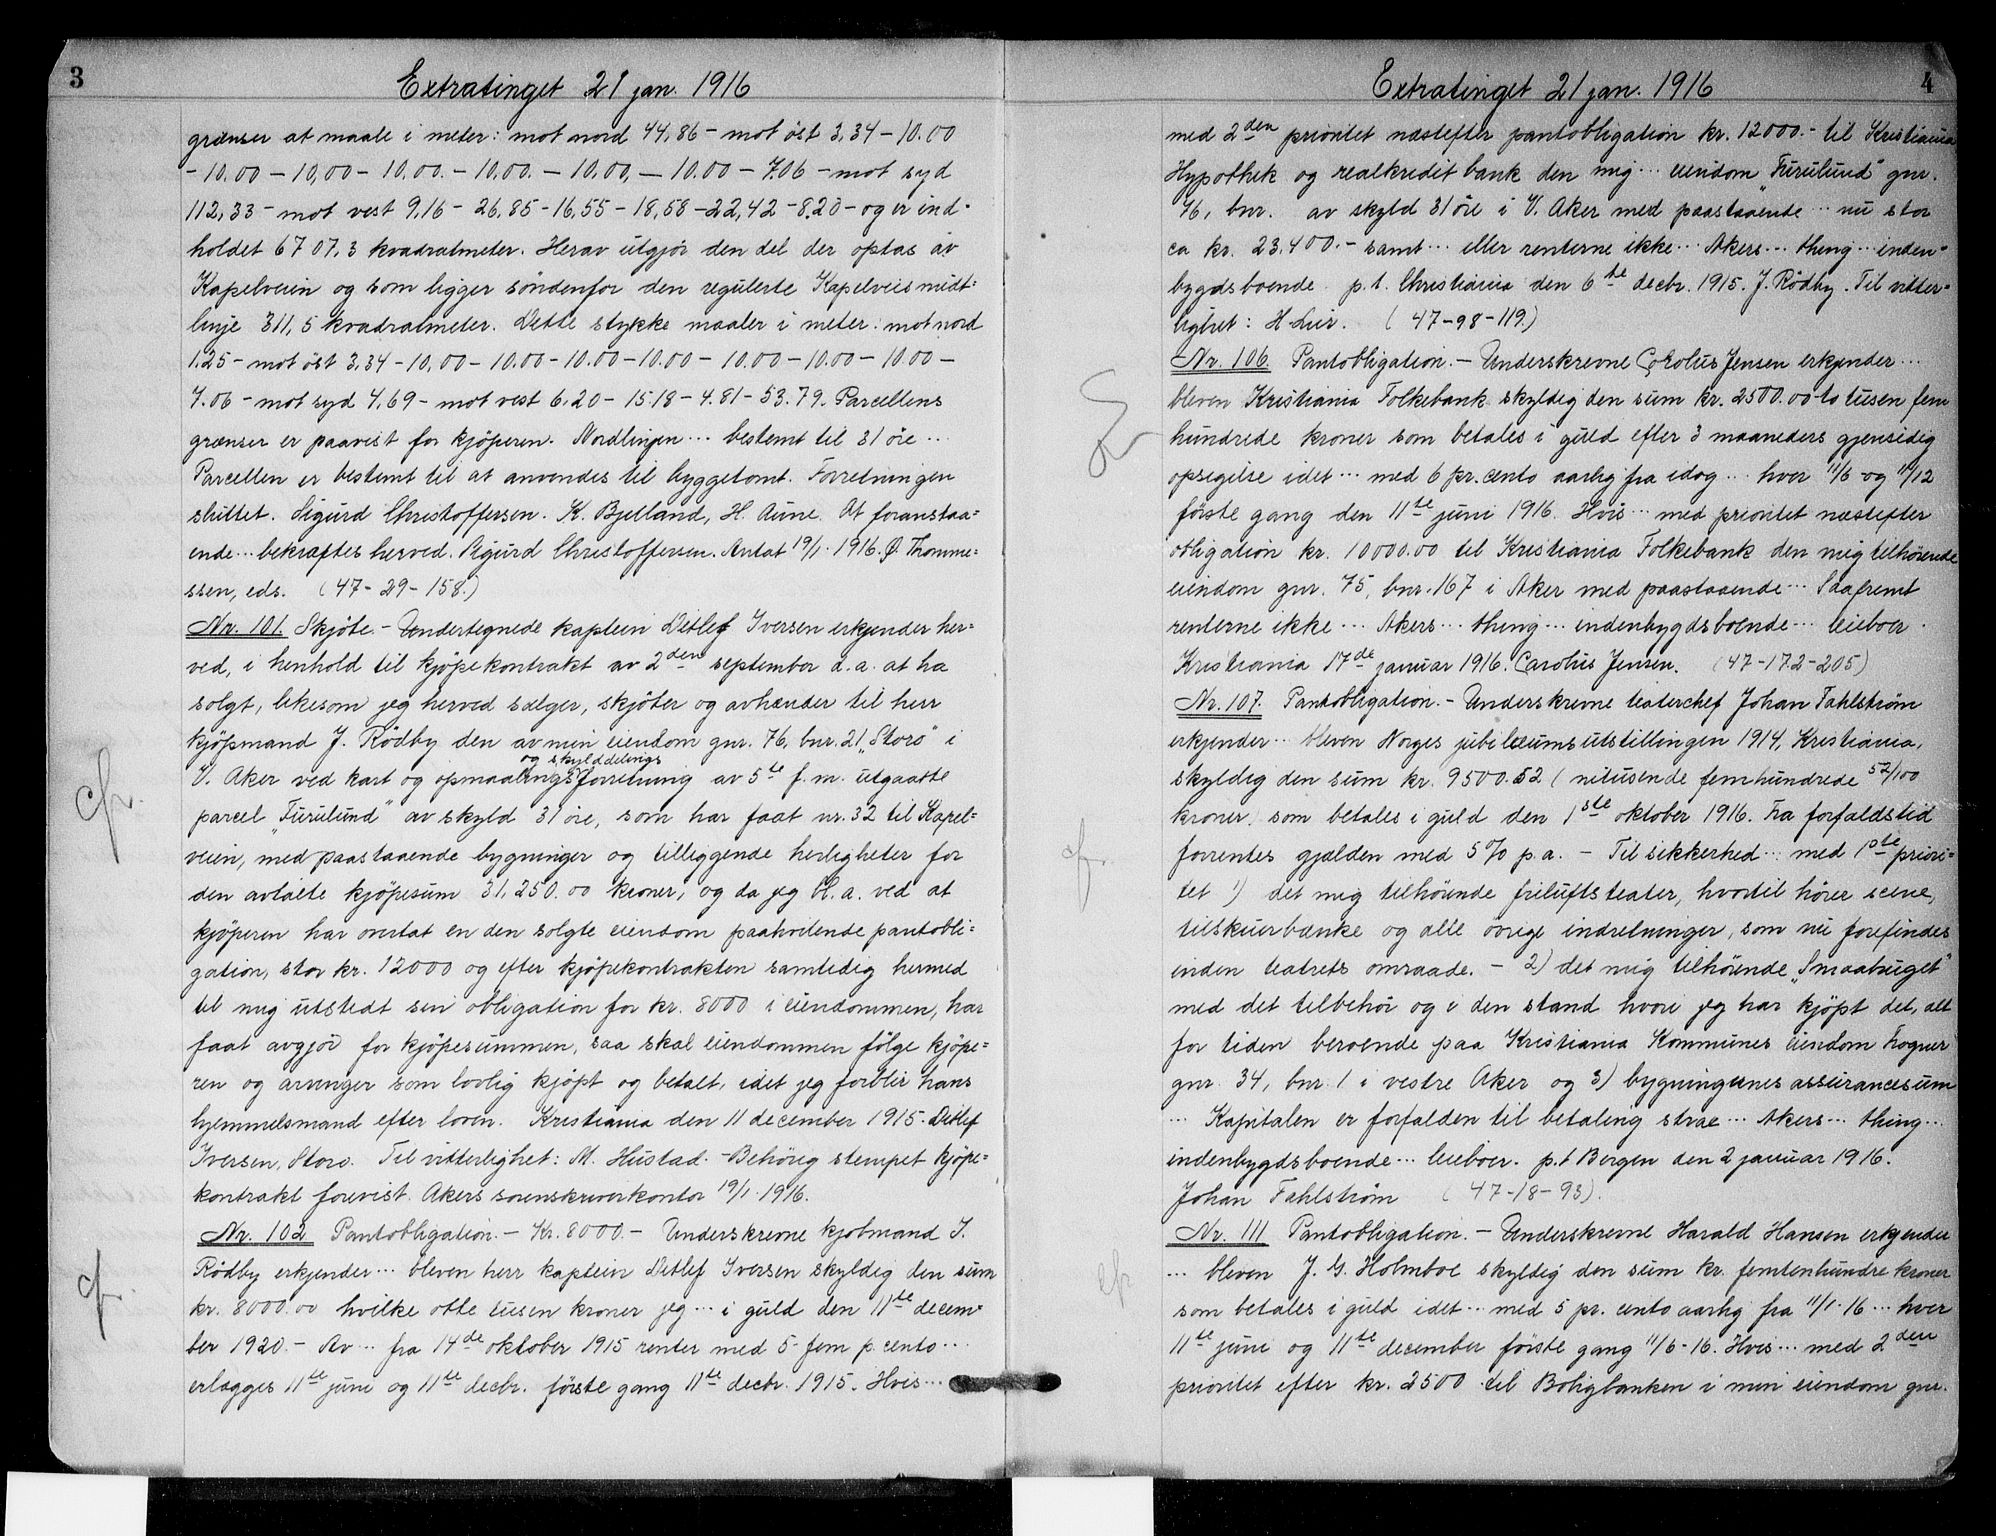 3
Extratinget 21 jan. 1916
grænser at maale i meter: mot nord 44,86 - mot øst 3,34 - 10.00
- 10.00 - 10,00 - 10.00. - 10.00. - 10.00, - 10.00 - 7.06 - mot syd
112,33 - mot vest 9,16 - 26,85 - 16,55 - 18,58 - 22,42 - 8,20 - og er ind-
holdet 6707,3 kvadratmeter. Herav utgjør den del der optas av
Kapelveien og som ligger søndenfor den regulerte Kapelveis midt-
linje 311,5 kvadratmeter. Dette stykke maaler i meter: mot nord
1.25 - mot øst 3,34 - 10,00 - 10.00 - 10.00 - 10.00 - 10.00 - 10.00 - 10.00 -
7.06 - mot syd 4,69 - mot vest 6,20 - 15.18 - 4.81 - 53.79. Parcellens
grænser er paavist for kjøperen. Nordlinjen ... bestemt til 31 øre ...
Parcellen er bestemt til at anvendes til byggetomt. Forretningen
sluttet. Sigurd Christoffersen. K. Bjelland, H. Aune. At foranstaa-
ende ... bekræftes herved. Sigurd Christoffersen. Antat 19/1. 1916. Ø. Thomme-
ssen, eds. (47-29-158.)
Nr. 101. Skjøte. - Undertegnede kaptein Detlef Iversen erkjender her-
ved, i henhold til kjøpekontrakt av 2den september d.a. at ha
solgt, likesom jeg herved sælger, skjøter og avhænder til herr
kjøpmand J. Rødby den av min eiendom gnr. 76, bnr. 21 „Storo" i
og skylddelings
V. Aker ved kart og opmaalingsforretning av 5te f.m. utgaatte
parcel „Furulund" av skyld 31 øre, som har faat nr. 32 til Kapel-
veien, med paastaaende bygninger og tilliggende herligheter for
den avtalte kjøpesum 31.250.00 kroner, og da jeg bl.a. ved at
kjøperen har overtat en den solgte eiendom paahvilende pantobli-
gation, stor kr. 12000 og efter kjøpekontrakten samtidig hermed
til mig utstedt sin obligation for kr. 8000 i eiendommen, har
faat avgjør for kjøpesummen, saa skal eiendommen følge kjøpe-
ren og arvinger som lovlig kjøpt og betalt, idet jeg forblir hans
hjemmelsmand efter loven. Kristiania den 11 december 1915. Detlef
Iversen, Storo. Til vitterlighet: M. Hustad. - Behørig stemplet kjøpe-
kontrakt forevist. Akers sorenskriverkontor 19/1. 1916.
Nr. 102 Pantobligation. - Kr. 8000. - Underskrevne kjøbmand J.
Rødby erkjender ... bleven herr kaptein Detlef Iversen skyldig den sum
kr. 8000.00 hvilke otte tusen kroner jeg ... i guld den 11te decem-
ber 1920. - Av ... fra 14de oktober 1915 renter med 5 - fem p. cento ...
erlægges 11te juni og 11te decbr. første gang 11te decbr. 1915. Hvis ...
4
Extratinget 21 jan. 1916
med 2den prioritet næstefter pantobligation kr. 12000.- til Kristiania
Hypothek og realkredit bank den mig ... eiendom „Furulund" gnr.
76, bnr. av skyld 31 øre i V. Aker med paastaaende ... nu stor
ca kr. 23.400.- samt ... eller renterne ikke ... Akers ... thing ... inden-
bygdsboende p.t. Christiania den 6te decbr. 1915. J. Rødby. Til vitter-
lighet: H. Lier. (47-98-119.)
Nr. 106. Pantobligation. - Underskrevne Carolus Jensen erkjender ...
bleven Kristiania Folkebank skyldig den sum kr. 2500.00 to tusen fem
hundrede kroner som betales i guld efter 3 maaneders gjensidig
opsigelse idet ... med 6 pr. cento aarlig fra idag ... hver 11/6 og 11/12
første gang den 11te juni 1916. Hvis ... med prioritet næstefter
obligation kr. 10000.00 til Kristiania Folkebank den mig tilhørende
eiendom gnr. 75, bnr. 167 i Aker med paastaaende ... Saafremt
renterne ikke ... Akers ... thing ... indenbygdsboende ... leieboer.
Kristiania 17de januar 1916. Carolus Jensen. (47-172-205)
Nr. 107. Pantobligation. - Underskrevne teaterchef Johan Fahlstrøm
erkjender ... bleven Norges jubilæumsutstillingen 1914, Kristiania,
skyldig den sum kr. 9500.52 (nitusende femhundrede 52/100
kroner, som betales i guld den 1ste oktober 1916. Fra forfaldstid
forrentes gjælden med 5 % p.a. - Til sikkerhed ... med 1ste priori-
tet 1) det mig tilhørende friluftsteater, hvortil hører scene,
tilskuerbænke og alle øvrige indretninger, som nu forefindes
inden teatrets omraade. - 2) det mig tilhørende „Smaabruget"
med det tilbehør og i den stand hvori jeg har kjøpt det, alt
for tiden beroende paa Kristiania Kommunes eiendom Frogner
gnr. 34, bnr. 1 i vestre Aker og 3) bygningernes assurancesum
... Kapitalen er forfalden til betaling strax ... Akers ... thing ...
indenbygdsboende ... leieboer. p.t Bergen den 2 januar 1916.
Johan Fahlstrøm (47-18-93).
Nr. 111 Pantobligation. - Underskrevne Harald Hansen erkjender
... bleven J. G. Holmboe skyldig den sum kr. femtenhundre kroner
som betales i guld idet ... med 5 pr. cento aarlig fra 11/1. 16 ... hver
11te juni og 11te december første gang 11/6-16. Hvis ... med 2den
prioritet efter kr. 2500 til Boligbanken i min eiendom gnr.